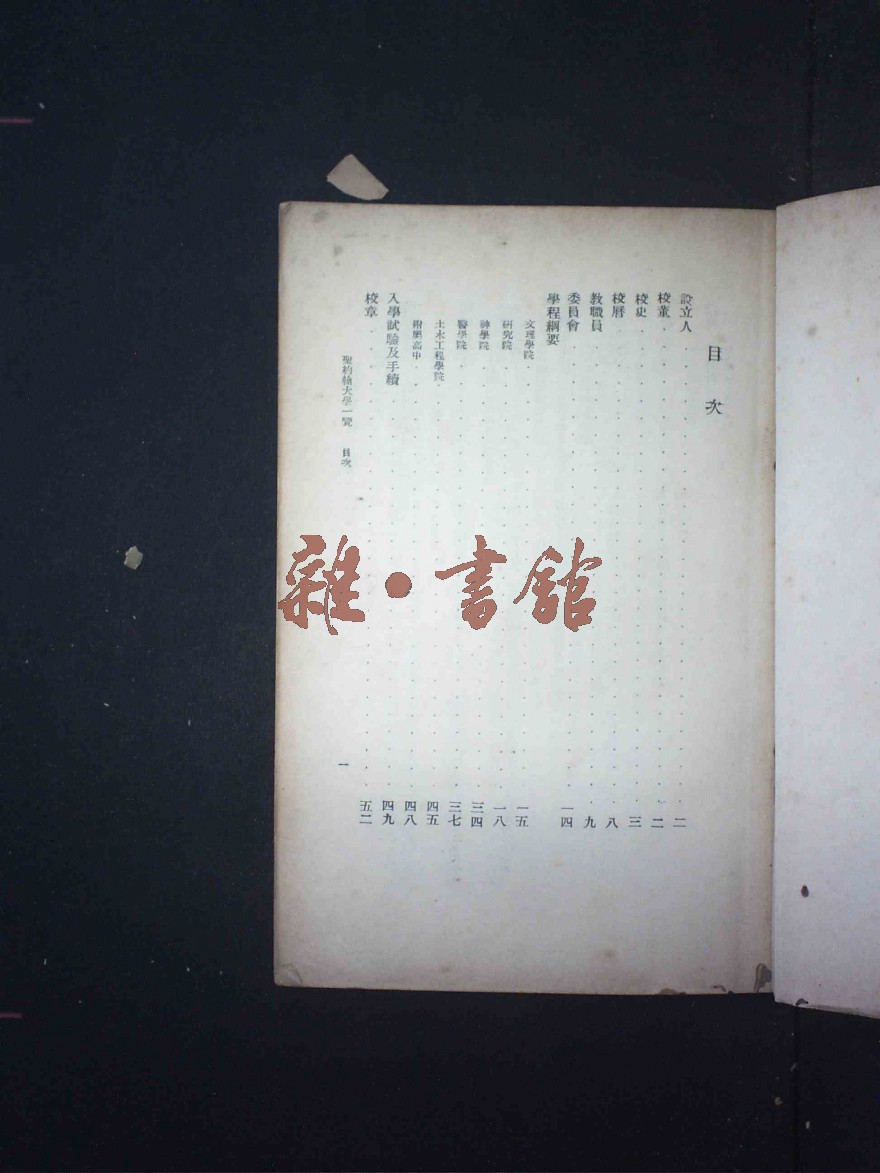 目次
設立人 二
校董 二
校史 三
校曆 八
教職員 九
委員會 一四
學程綱要
文理學院 一五
研究院 一八
神學院 三四
醫學院 三七
土木工程學院 四五
附屬高中 四八
入學試驗及手續 四九
校章 五二
聖約翰大學一覽 目次 一
雜·書館